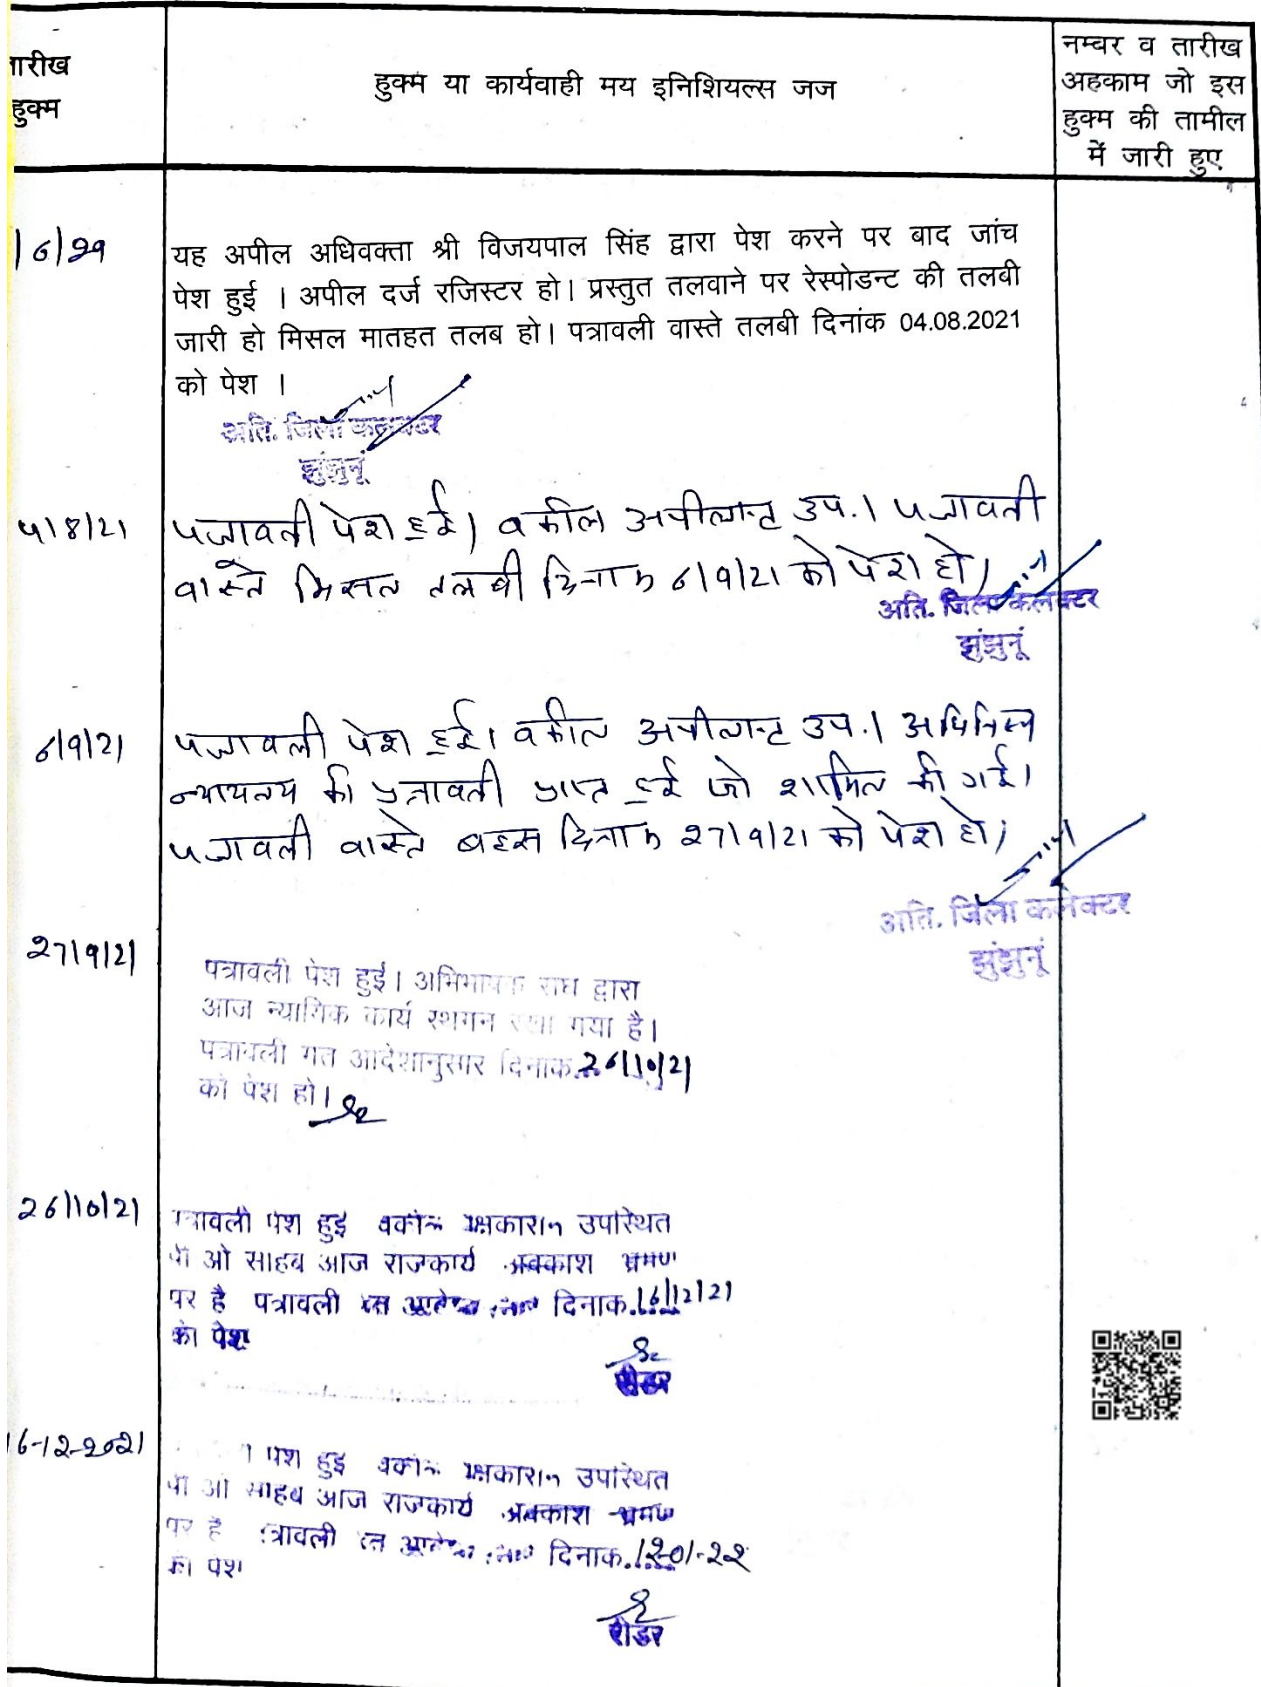 तारीख
हुक्म
हुक्म या कार्यवाही मय इनिशियल्स जज
नम्बर व तारीख
अहकाम जो इस
हुक्म की तामील
में जारी हुए
/6/21
यह अपील अधिवक्ता श्री विजयपाल सिंह द्वारा पेश करने पर बाद जांच
पेश हुई । अपील दर्ज रजिस्टर हो। प्रस्तुत तलवाने पर रेस्पोडन्ट की तलबी
जारी हो मिसल मातहत तलब हो। पत्रावली वास्ते तलबी दिनांक 04.08.2021
को पेश ।
अति. जिला कलक्टर
झुंझुनूं
4/8/21
पत्रावली पेश हुई। वकील अपीलान्ट उप.। पत्रावली
वास्ते मिसल तलबी दिनांक 6/9/21 को पेश हो।
अति. जिला कलक्टर
झुंझुनूं
6/9/21
पत्रावली पेश हुई। वकील अपीलान्ट उप.। अधिनिस्थ
न्यायलय की पत्रावली प्राप्त हुई जो शामिल की गई।
पत्रावली वास्ते बहस दिनांक 27/9/21 को पेश हो।
अति. जिला कलेक्टर
झुंझुनूं
27/9/21
पत्रावली पेश हुई। अभिभाषक संघ द्वारा
आज न्यायिक कार्य स्थगन रखा गया है।
पत्रावली गत आदेशानुसार दिनांक 26/10/21
को पेश हो।
26/10/21
पत्रावली पेश हुई वकील पक्षकारान उपस्थित
पी ओ साहब आज राजकार्य अवकाश भ्रमण
पर है पत्रावली दिनांक 16/12/21
को पेश
रीडर
16-12-2021
पेश हुई वकील पक्षकारान उपस्थित
पी ओ साहब आज राजकार्य अवकाश भ्रमण
पर है पत्रावली दिनांक 12-01-22
को पेश
रीडर